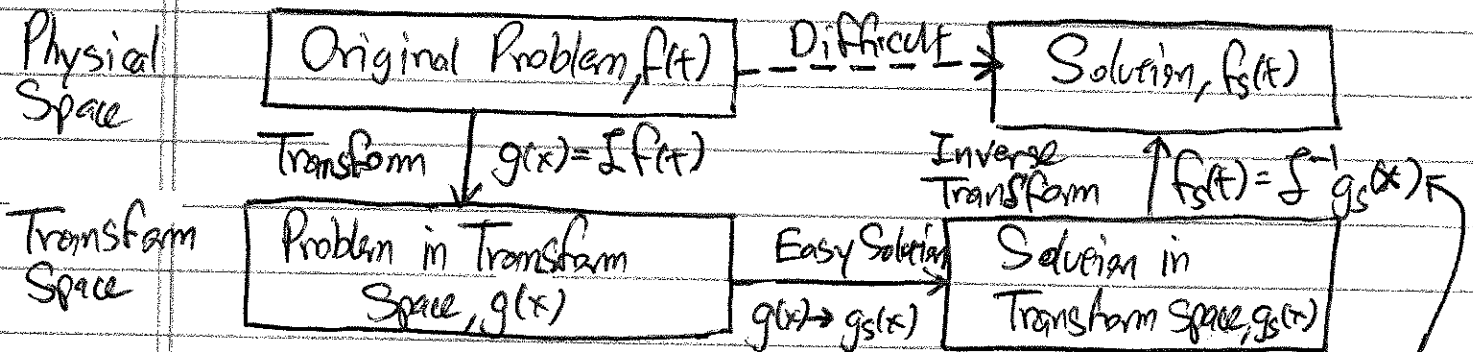 Physical Space
Original Problem, f(t)
Difficult
Solution, fs(t)
Transform
g(x) = ℒ f(t)
Inverse Transform
fs(t) = ℒ⁻¹ gs(x)
Transform Space
Problem in Transform
Space, g(x)
Easy Solution
g(x) → gs(x)
Solution in
Transform Space, gs(x)